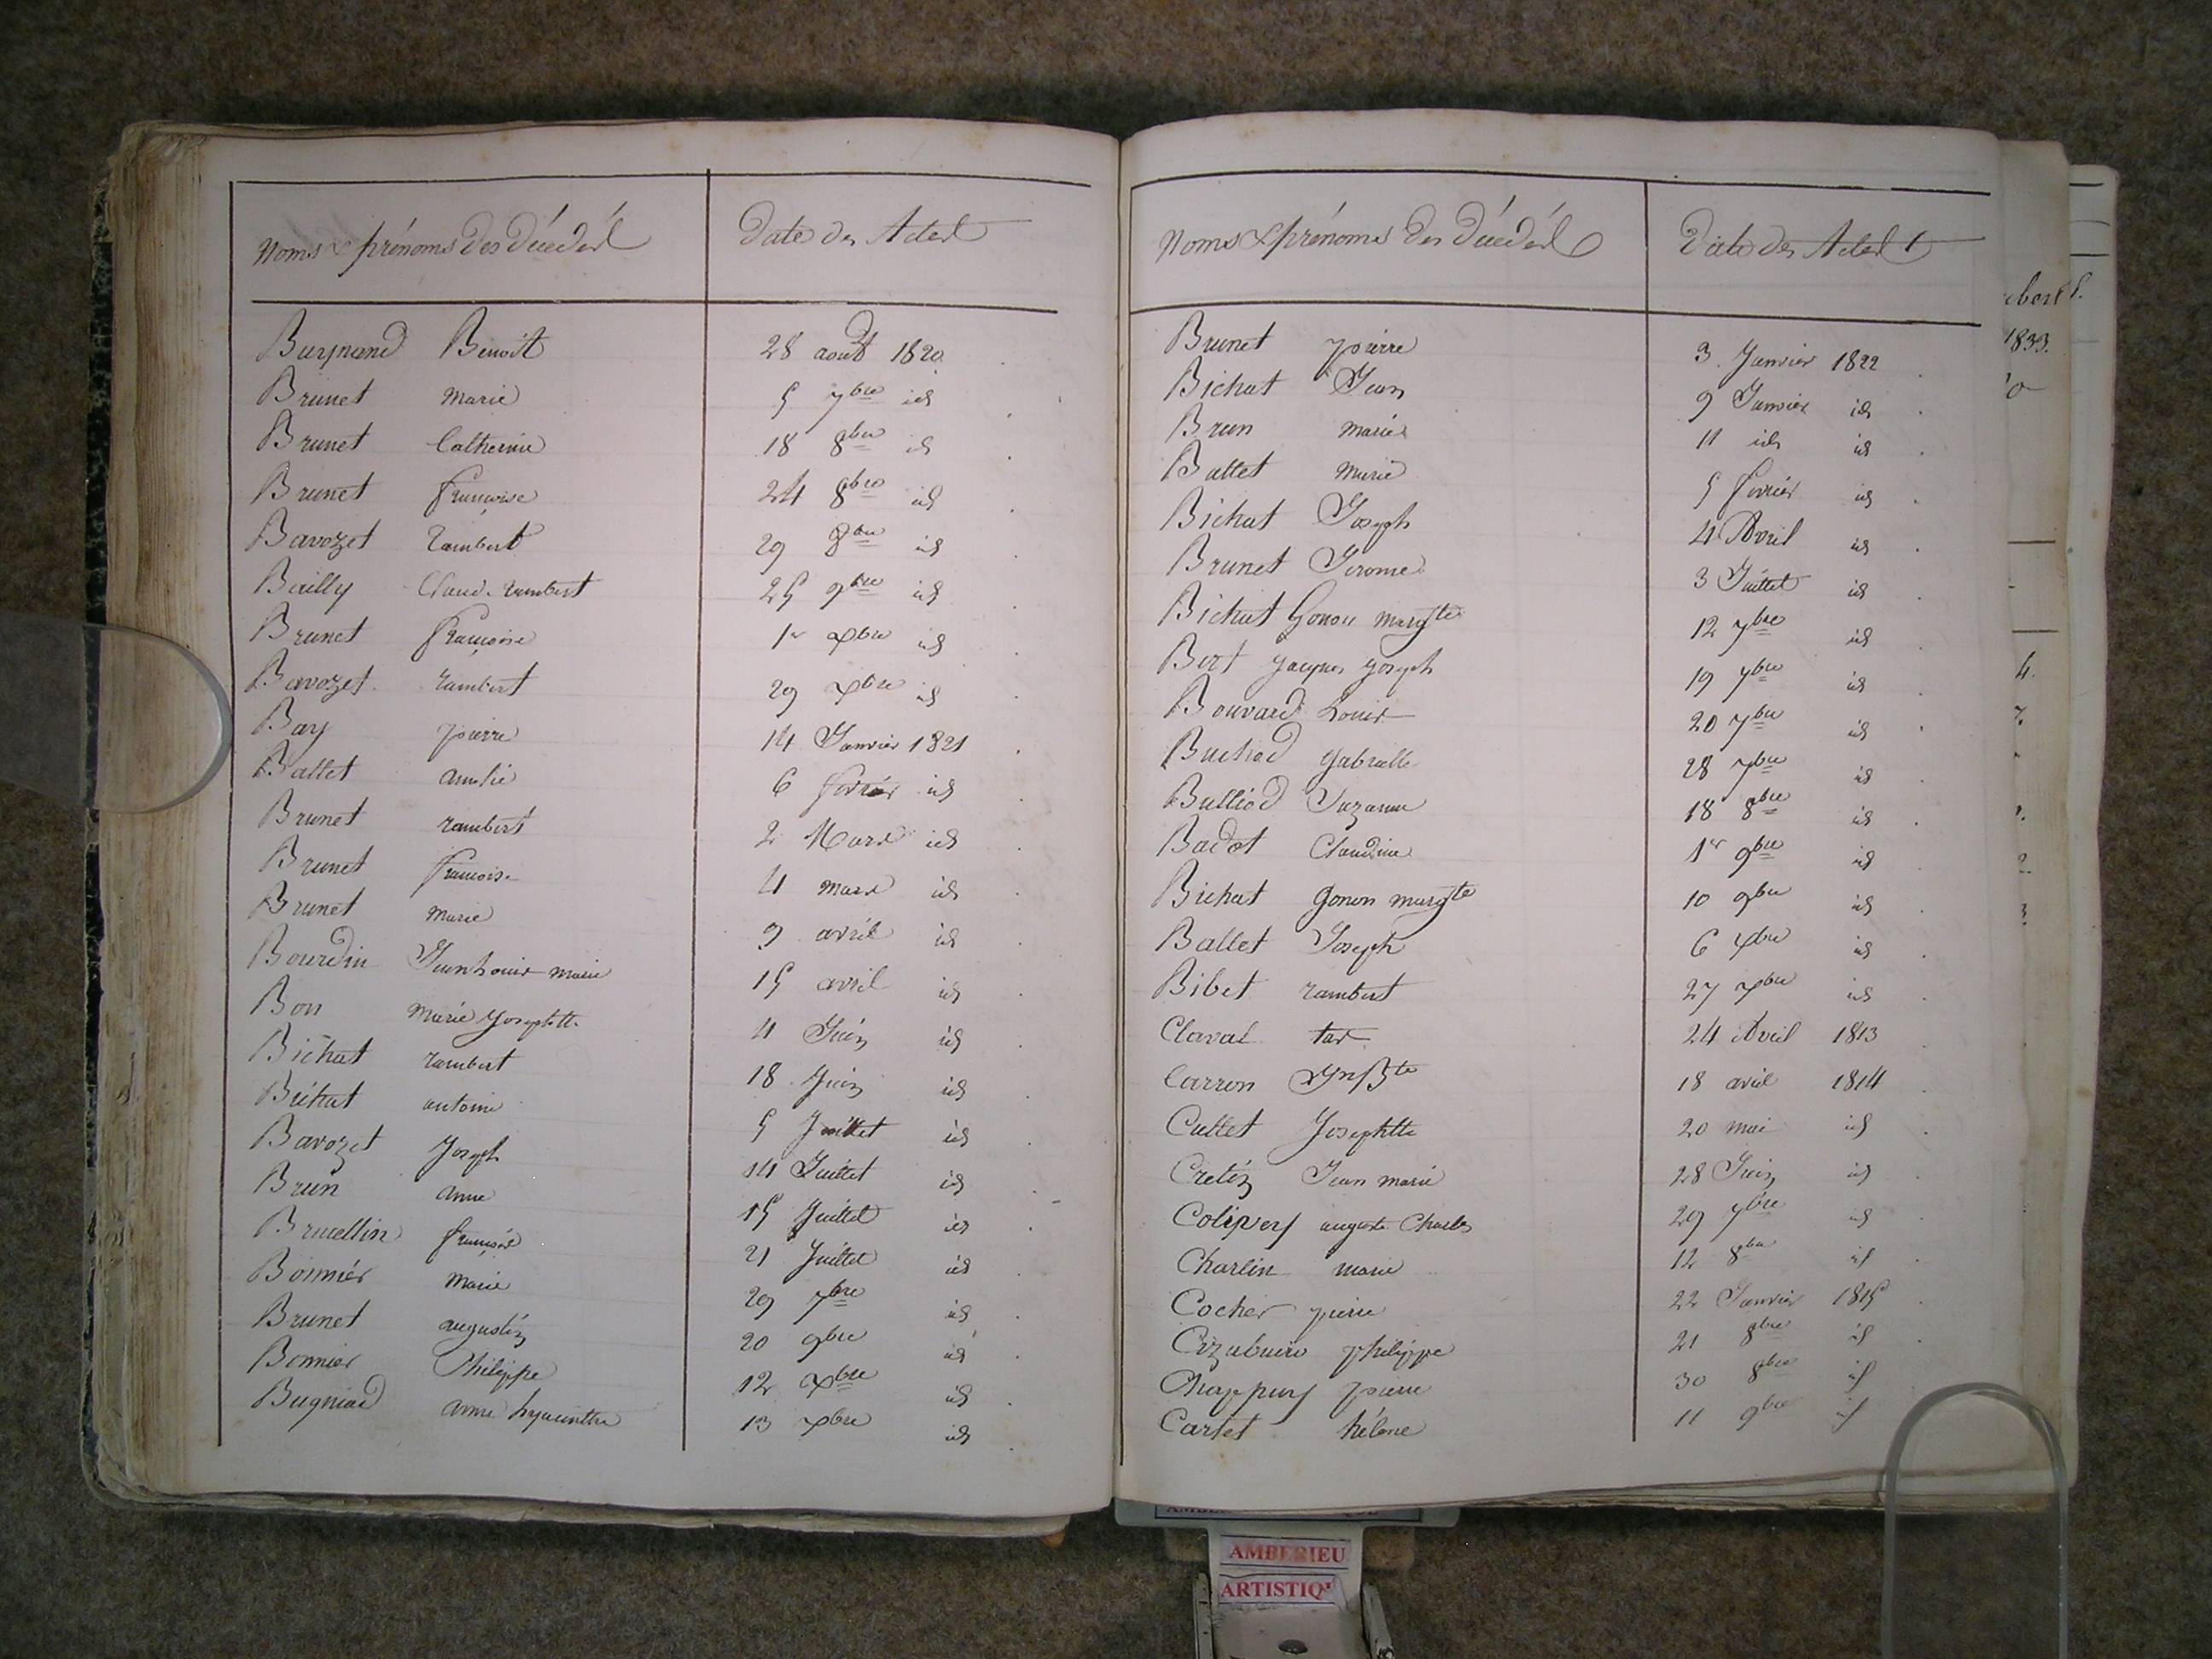 Noms & prénoms des décédés
Date des Actes
Buynand Benoit 28 août 1820
Brunet Marie 5 7bre id
Brunet Catherine 18 8bre id
Brunet françoise 24 8bre id
Bavozet Rambert 29 8bre id
Bailly Claud. rambert 25 9bre id
Brunet françoise 1er xbre id
Bavozet rambert 29 xbre id
Bay pierre 14 Janvier 1821
Ballet amélie 6 février id
Brunet rambert 2 Mars id
Brunet francoise 4 mars id
Brunet marie 9 avril id
Bourdin Jean Louis marie 15 avril id
Bon Marie Josephtte 4 Juin id
Bichat rambert 18 Juin id
Bichat antoine 5 Juillet id
Bavozet Joseph 14 Juillet id
Brun anne 15 Juillet id
Brucellin françois 21 Juillet id
Bonnier marie 29 7bre id
Brunet augustin 20 9bre id
Bonnier Philippe 12 xbre id
Bugniod anne hyacinthe 13 xbre id
Noms & prénoms des décédés
Date des Actes
Brunet pierre 3 Janvier 1822
Bichat Jean 9 Janvier id
Brun marie 11 id id
Ballet marie 5 février id
Bichat Joseph 4 Avril id
Brunet Jerome 3 Juillet id
Bichat Gonon margte 12 7bre id
Bert Jacques Joseph 19 7bre id
Bouvard Louis 20 7bre id
Buchod gabrielle 28 7bre id
Bulliod Suzanne 18 8bre id
Badot Claudine 1er 9bre id
Bichat gonon margte 10 9bre id
Ballet Joseph 6 xbre id
Bibet rambert 27 xbre id
Claval 24 Avril 1813
Carron Jn Bte 18 avril 1814
Cullet Josephtte 20 mai id
Cretin Jean marie 28 Juin id
Colipuy auguste Charles 29 7bre id
Charlin marie 12 8bre id
Cocher pierre 22 Janvier 1815
philippe 21 8bre id
Chappuy pierre 30 8bre id
Cartet hélène 11 9bre id
1833.
AMBERIEU
ARTISTIQ